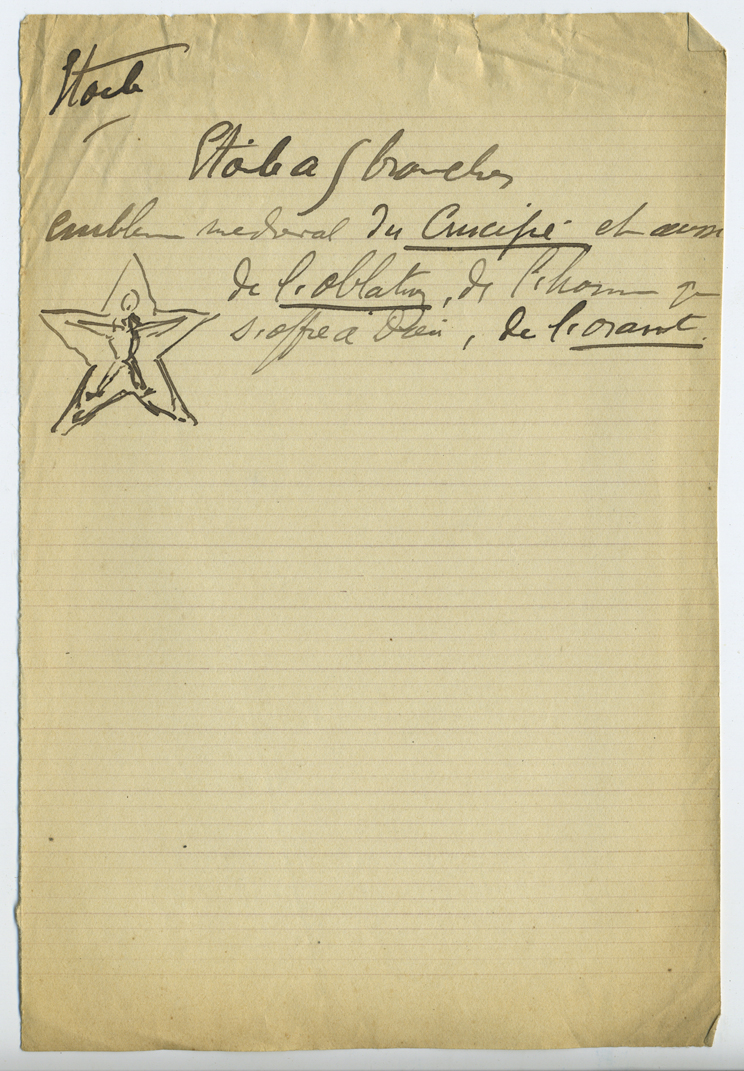 Etoile
Etoile a 5 branches
emblème medieval du Crucifié et aussi
de l'oblation, de l'homme qui
s'offre à Dieu, de l'orant.